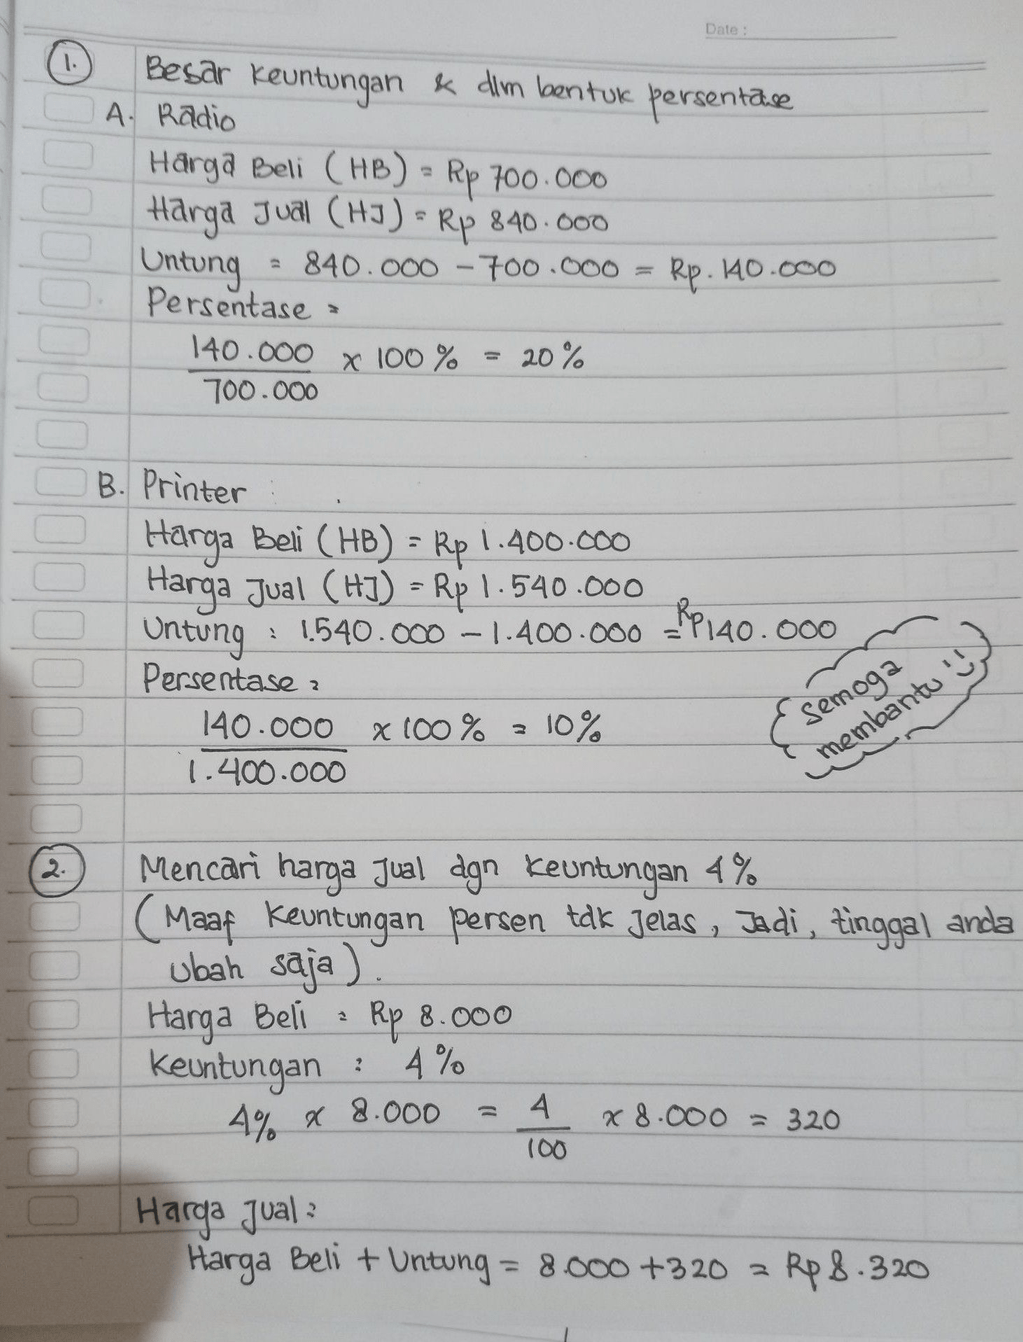 Date :
1. Besar keuntungan & dlm bentuk persentase
A. Radio
Harga Beli (HB) = Rp 700.000
Harga Jual (HJ) = Rp 840.000
Untung = 840.000 - 700.000 = Rp. 140.000
Persentase =
140.000 x 100% = 20%
700.000
B. Printer :
Harga Beli (HB) = Rp 1.400.000
Harga Jual (HJ) = Rp 1.540.000
Untung : 1.540.000 - 1.400.000 = Rp 140.000
Persentase =
140.000 x 100% = 10%
1.400.000
Semoga
membantu :)
2. Mencari harga Jual dgn keuntungan 4%
(Maaf keuntungan persen tdk jelas, Jadi, tinggal anda
ubah saja).
Harga Beli = Rp 8.000
Keuntungan : 4%
4% x 8.000 = 4 x 8.000 = 320
100
Harga Jual =
Harga Beli + Untung = 8.000 + 320 = Rp 8.320